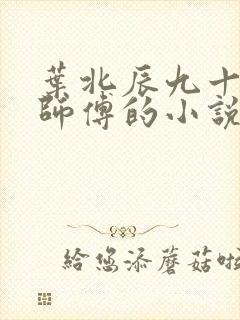 葉北辰九十
師傅的小說
給您添蘑菇啦